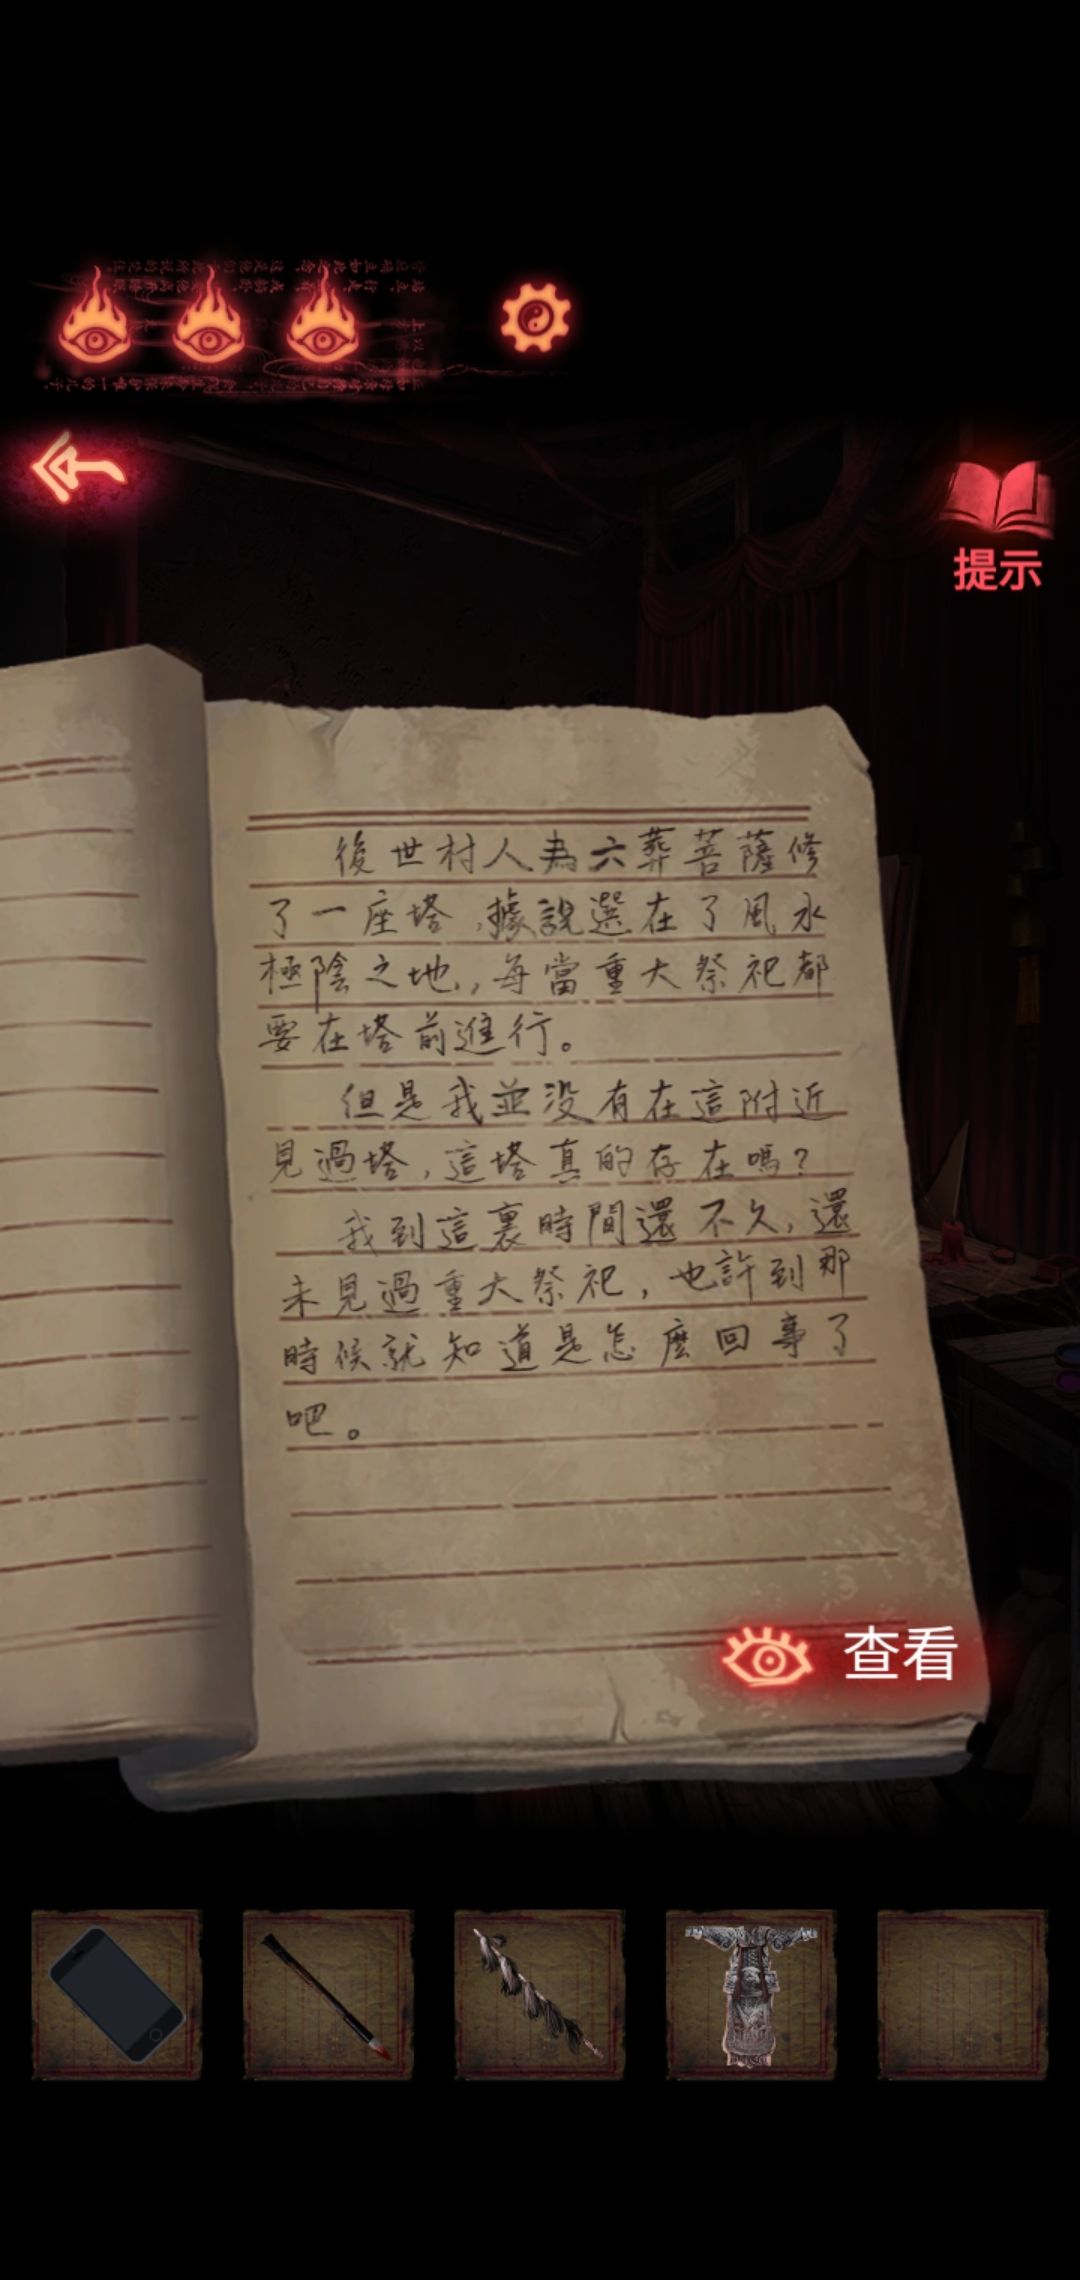 提示
後世村人為六葬菩薩修
了一座塔,據說選在了風水
極陰之地,每當重大祭祀都
要在塔前進行。
但是我並没有在這附近
見過塔,這塔真的存在嗎?
我到這裏時間還不久,還
未見過重大祭祀,也許到那
時候就知道是怎麼回事了
吧。
查看